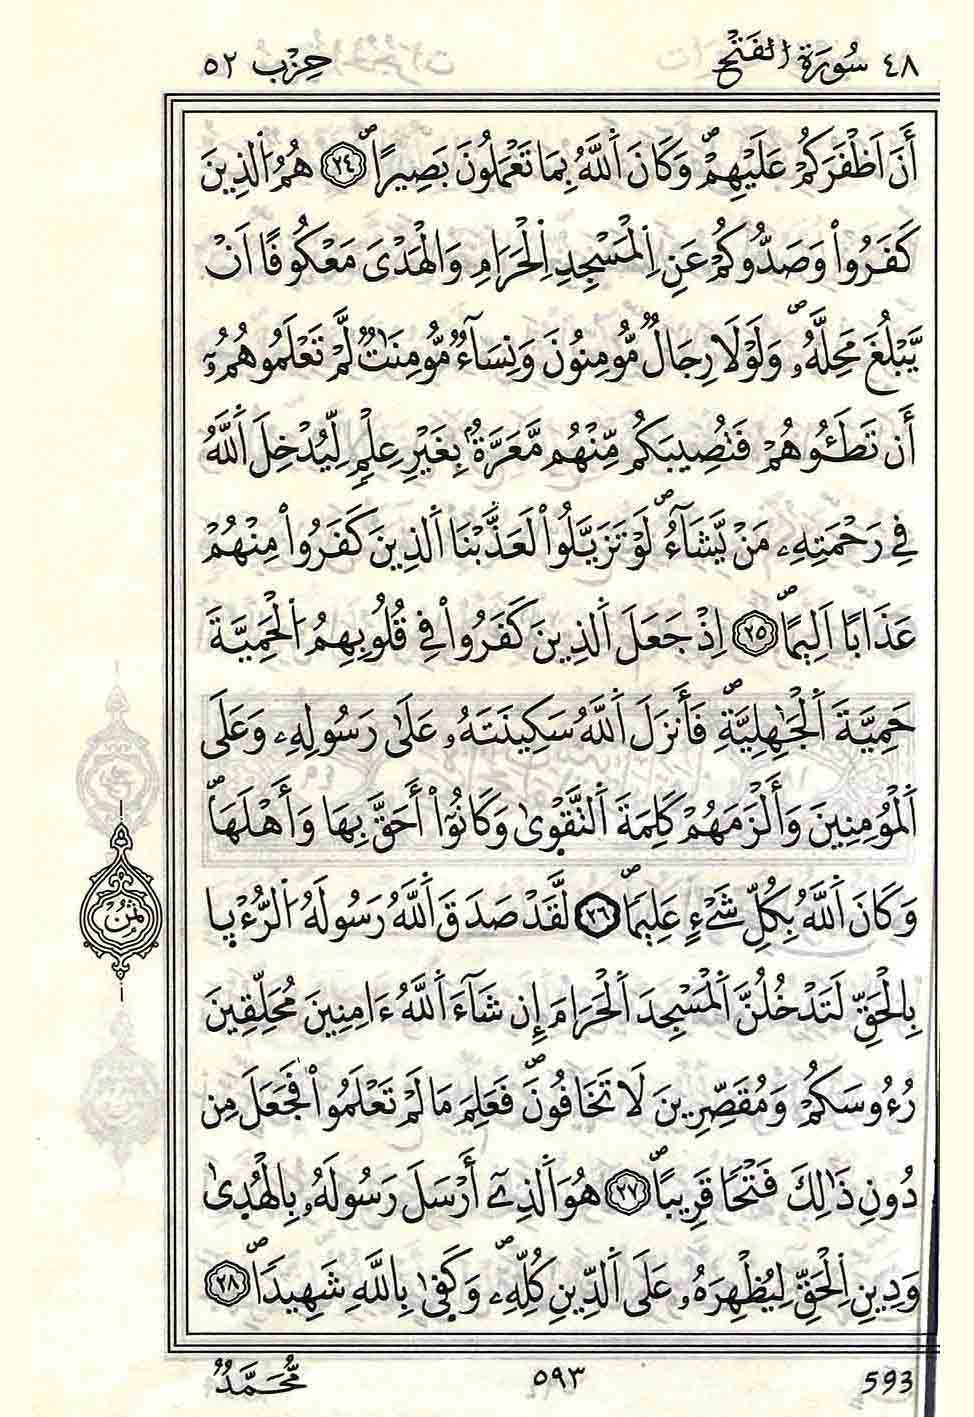 ٤٨ سُورَةُ الفَتْحِ حِزْب ٥٢
أَنَ اَظْفَرَكُمْ عَلَيْهِمْۖ وَكَانَ اَ۬للَّهُ بِمَا تَعْمَلُونَ بَصِيراًۖ ٢٤ هُمُ اُ۬لذِينَ
كَفَرُواْ وَصَدُّوكُمْ عَنِ اِ۬لْمَسْجِدِ اِ۬لْحَرَامِ وَالْهَدْيَ مَعْكُوفًا اَنْ
يَّبْلُغَ مَحِلَّهُۥۖ وَلَوْلَا رِجَالٞ مُّومِنُونَ وَنِسَآءٞ مُّومِنَٰتٞ لَّمْ تَعْلَمُوهُمُۥٓ
أَن تَطَـُٔوهُمْ فَتُصِيبَكُم مِّنْهُم مَّعَرَّةُۢ بِغَيْرِ عِلْمٖ لِّيُدْخِلَ اَ۬للَّهُ
فِي رَحْمَتِهِۦ مَنْ يَّشَآءُۖ لَوْ تَزَيَّلُواْ لَعَذَّبْنَا اَ۬لذِينَ كَفَرُواْ مِنْهُمْ
عَذَابًا اَلِيماًۖ ٢٥ اِذْ جَعَلَ اَ۬لذِينَ كَفَرُواْ فِي قُلُوبِهِمُ اُ۬لْحَمِيَّةَ
حَمِيَّةَ اَ۬لْجَٰهِلِيَّةِۖ فَأَنزَلَ اَ۬للَّهُ سَكِينَتَهُۥ عَلَىٰ رَسُولِهِۦ وَعَلَى
اَ۬لْمُومِنِينَ وَأَلْزَمَهُمْ كَلِمَةَ اَ۬لتَّقْو۪يٰ وَكَانُوٓاْ أَحَقَّ بِهَا وَأَهْلَهَاۖ
وَكَانَ اَ۬للَّهُ بِكُلِّ شَےْءٍ عَلِيماًۖ ٢٦ لَّقَدْ صَدَقَ اَ۬للَّهُ رَسُولَهُ اُ۬لرُّءْي۪ا
بِالْحَقِّ لَتَدْخُلُنَّ اَ۬لْمَسْجِدَ اَ۬لْحَرَامَ إِن شَآءَ اَ۬للَّهُ ءَامِنِينَ مُحَلِّقِينَ
رُءُوسَكُمْ وَمُقَصِّرِينَ لَا تَخَافُونَۖ فَعَلِمَ مَا لَمْ تَعْلَمُواْ فَجَعَلَ مِن
دُونِ ذَٰلِكَ فَتْحًا قَرِيباًۖ ٢٧ هُوَ اَ۬لذِےٓ أَرْسَلَ رَسُولَهُۥ بِالْهُد۪يٰ
وَدِينِ اِ۬لْحَقِّ لِيُظْهِرَهُۥ عَلَى اَ۬لدِّينِ كُلِّهِۦۖ وَكَف۪يٰ بِاللَّهِ شَهِيداًۖ ٢٨
ثُمُنْ
593 ٥٩٣ مُّحَمَّدٞ